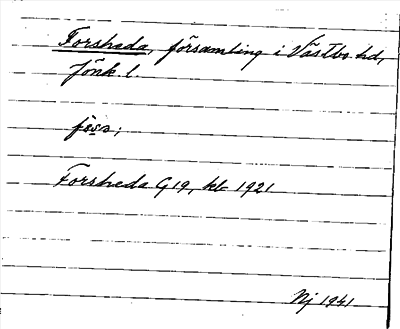 Forsheda, församling i Västbo hd,
Jönk l.
Forsheda G19, kb 1921
Nj 1941